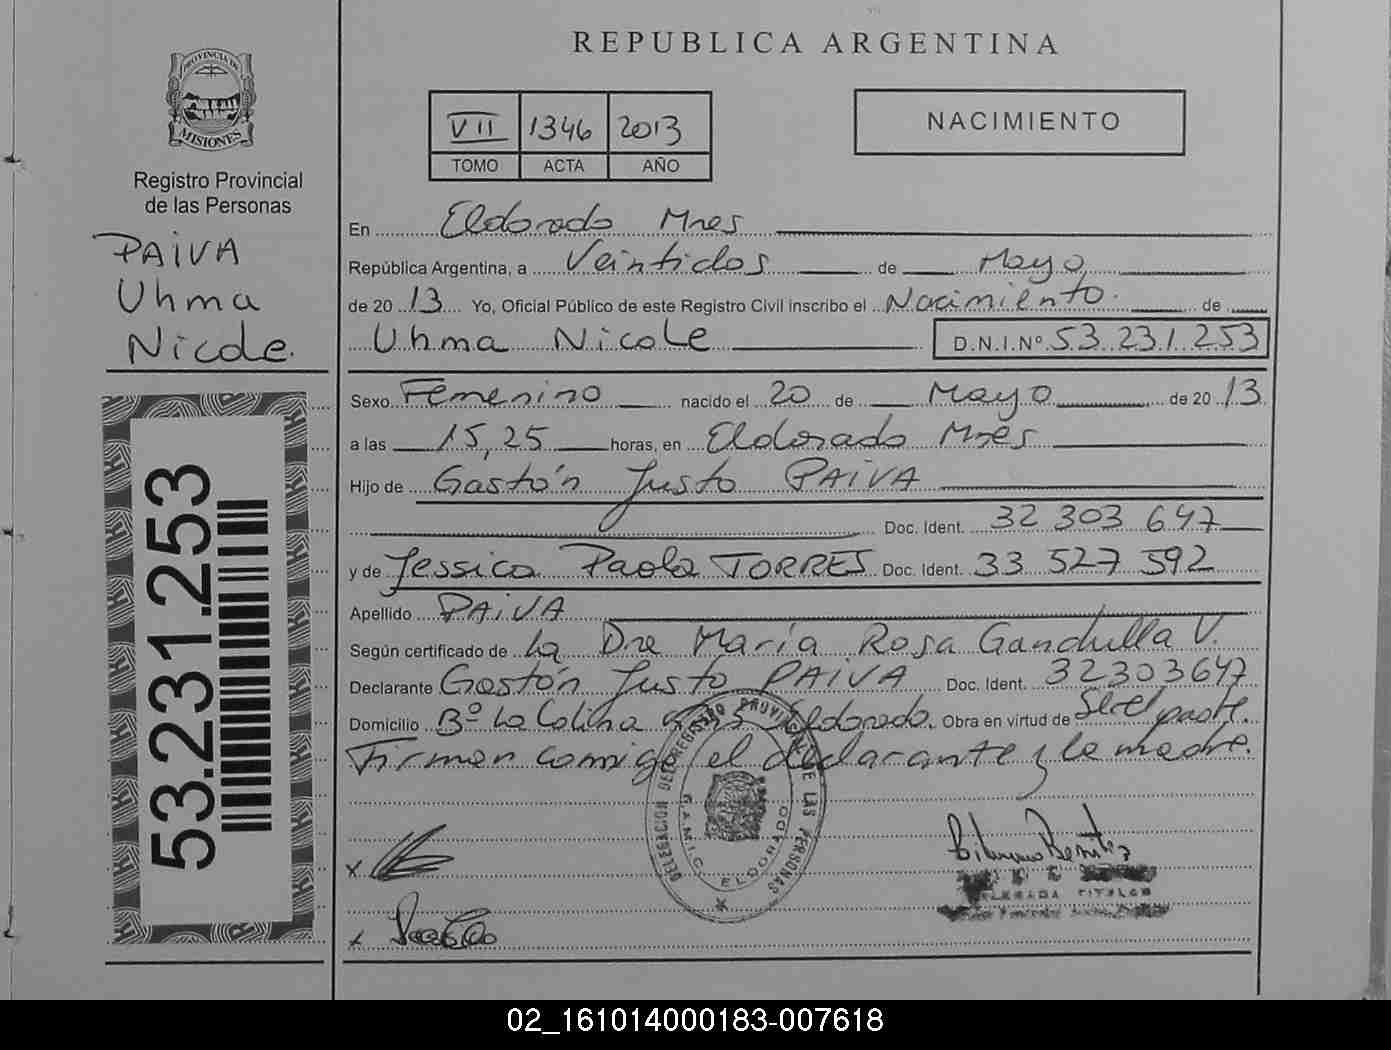 REPUBLICA ARGENTINA
PROVINCIA DE MISIONES
Registro Provincial
de las Personas
PAIVA
Uhma
Nicole.
53.231.253
VII 1346 2013
TOMO ACTA AÑO
NACIMIENTO
En Eldorado Mnes
República Argentina, a Veintidos de Mayo
de 2013 Yo, Oficial Público de este Registro Civil inscribo el Nacimiento de
Uhma Nicole D.N.I.Nº 53.231.253
Sexo Femenino nacido el 20 de Mayo de 2013
a las 15,25 horas, en Eldorado Mnes
Hijo de Gastón Justo PAIVA
Doc. Ident. 32 303 647
y de Jessica Paola TORRES Doc. Ident. 33 527 592
Apellido PAIVA
Según certificado de La Dra María Rosa Gandulla V.
Declarante Gastón Justo PAIVA Doc. Ident. 32303647
Domicilio Bº La Colina Eldorado. Obra en virtud de
Firman comigo el declarante y la madre.
DELEGACION DEL REGISTRO PROVINCIAL DE LAS PERSONAS
ELDORADO
Benitez
TITULAR
02_161014000183-007618